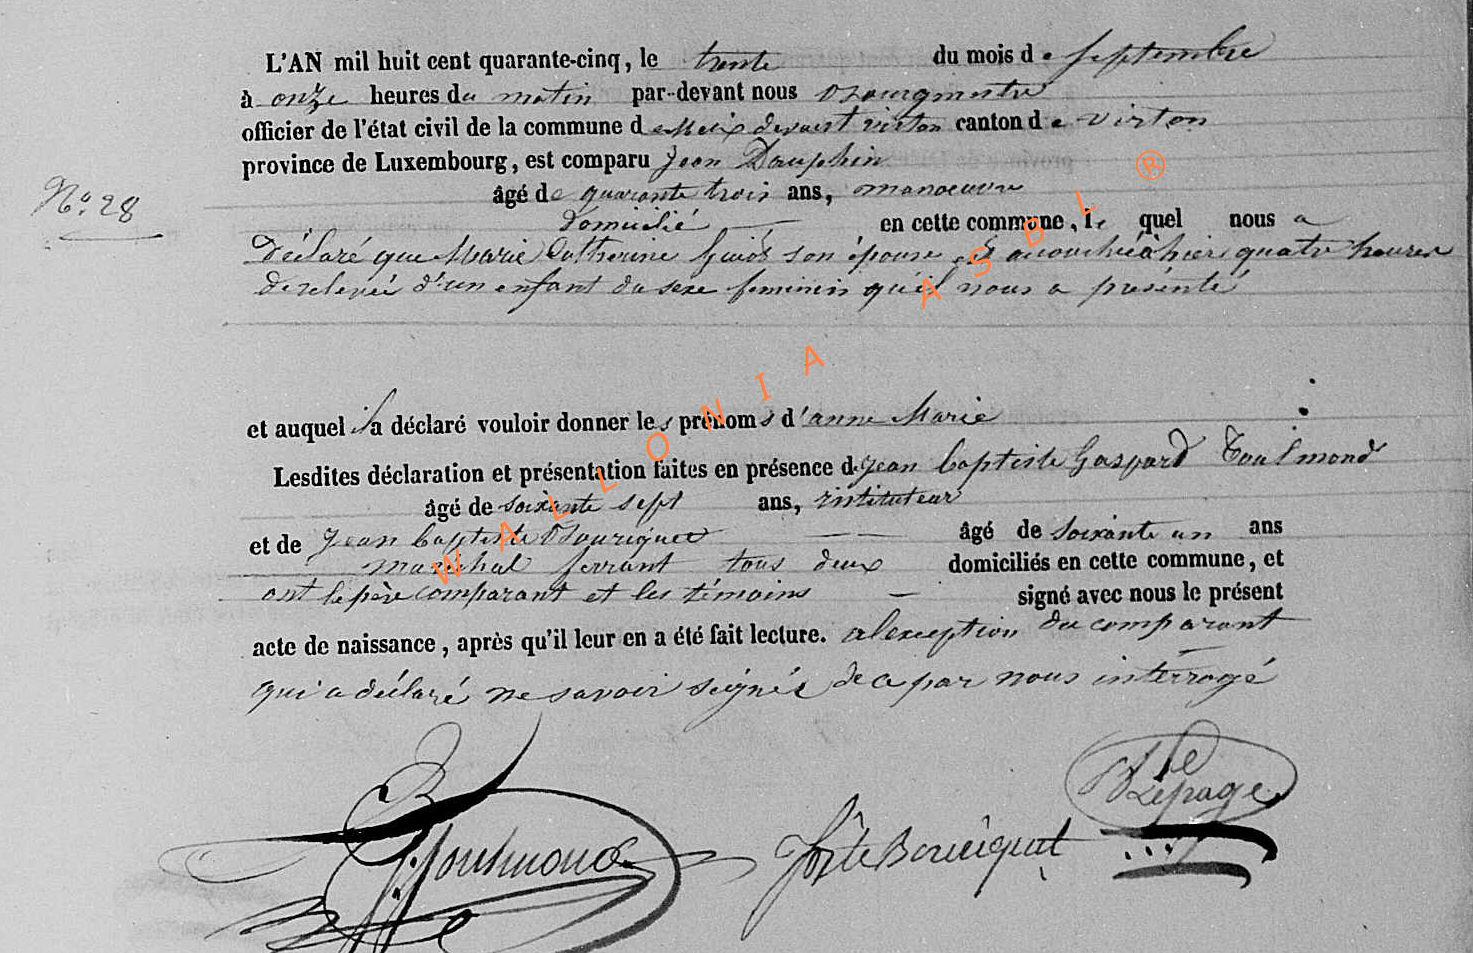 L'AN mil huit cent quarante-cinq, le trente du mois de septembre
à onze heures du matin par-devant nous Bourgmestre
officier de l'état civil de la commune de Meix devant virton canton de virton
province de Luxembourg, est comparu Jean Dauphin
âgé de quarante trois ans, manoeuvre
N.º 28
domicilié en cette commune, le quel nous a
Déclaré que Marie Catherine son épouse est accouchée hier quatre heures
de relevée d'un enfant du sexe feminin qu'il nous a présenté
et auquel il a déclaré vouloir donner les prénoms d'anne Marie
Lesdites déclaration et présentation faites en présence de Jean baptiste Gaspard Toulmond
âgé de soixante sept ans, instituteur
et de Jean baptiste Bouriquet âgé de soixante un ans
marechal ferrant tous deux domiciliés en cette commune, et
ont le père comparant et les témoins signé avec nous le présent
acte de naissance, après qu'il leur en a été fait lecture. a lexception du comparant
qui a déclaré ne savoir signér de ce par nous intérrogé
Lepage
Toulmond
Bouriquet
WALLONIA ASBL ®